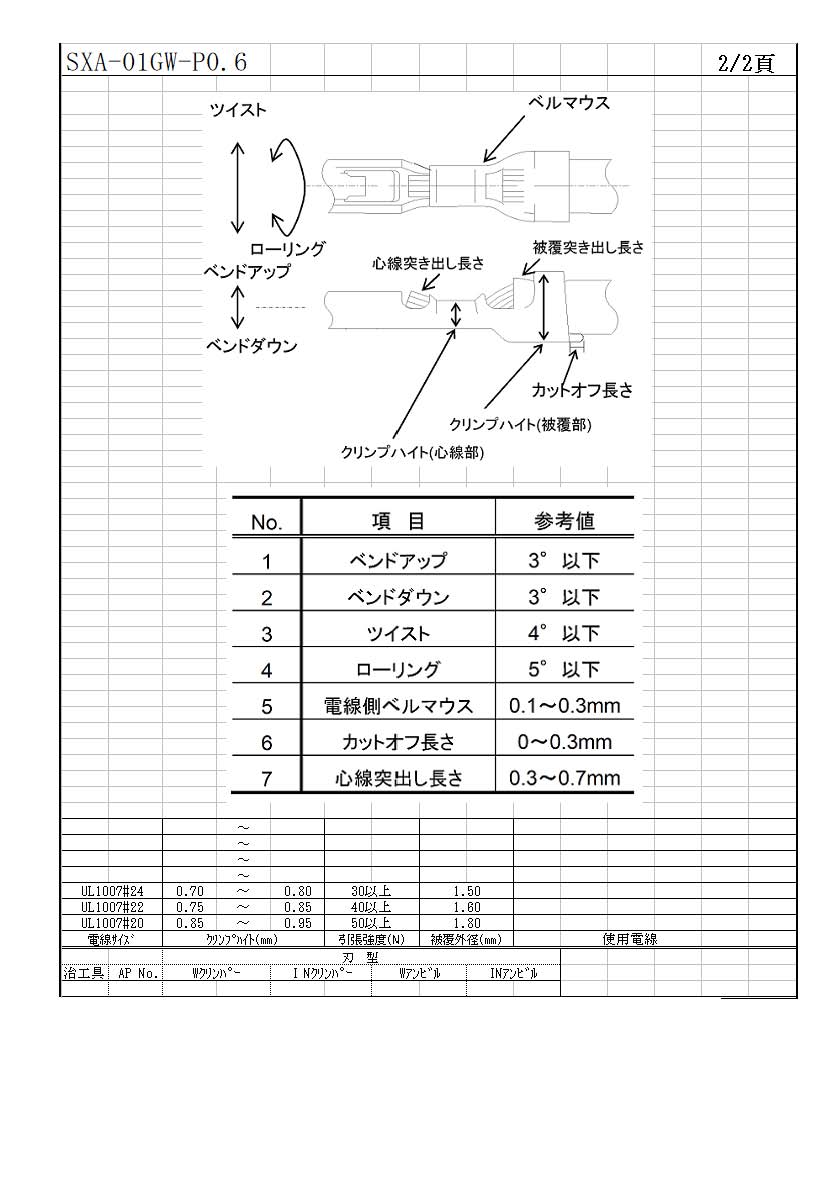 SXA-01GW-P0.6 2/2頁
ツイスト ベルマウス
ローリング
ベンドアップ 心線突き出し長さ 被覆突き出し長さ
ベンドダウン
カットオフ長さ
クリンプハイト(被覆部)
クリンプハイト(心線部)
No. 項 目 参考値
1 ベンドアップ 3° 以下
2 ベンドダウン 3° 以下
3 ツイスト 4° 以下
4 ローリング 5° 以下
5 電線側ベルマウス 0.1～0.3mm
6 カットオフ長さ 0～0.3mm
7 心線突出し長さ 0.3～0.7mm
～
～
～
～
UL1007#24 0.70 ～ 0.80 30以上 1.50
UL1007#22 0.75 ～ 0.85 40以上 1.60
UL1007#20 0.85 ～ 0.95 50以上 1.80
電線ｻｲｽﾞ ｸﾘﾝﾌﾟﾊｲﾄ(mm) 引張強度(N) 被覆外径(mm) 使用電線
刃 型
治工具 AP No. Wｸﾘﾝﾊﾟｰ INｸﾘﾝﾊﾟｰ Wｱﾝﾋﾞﾙ INｱﾝﾋﾞﾙ